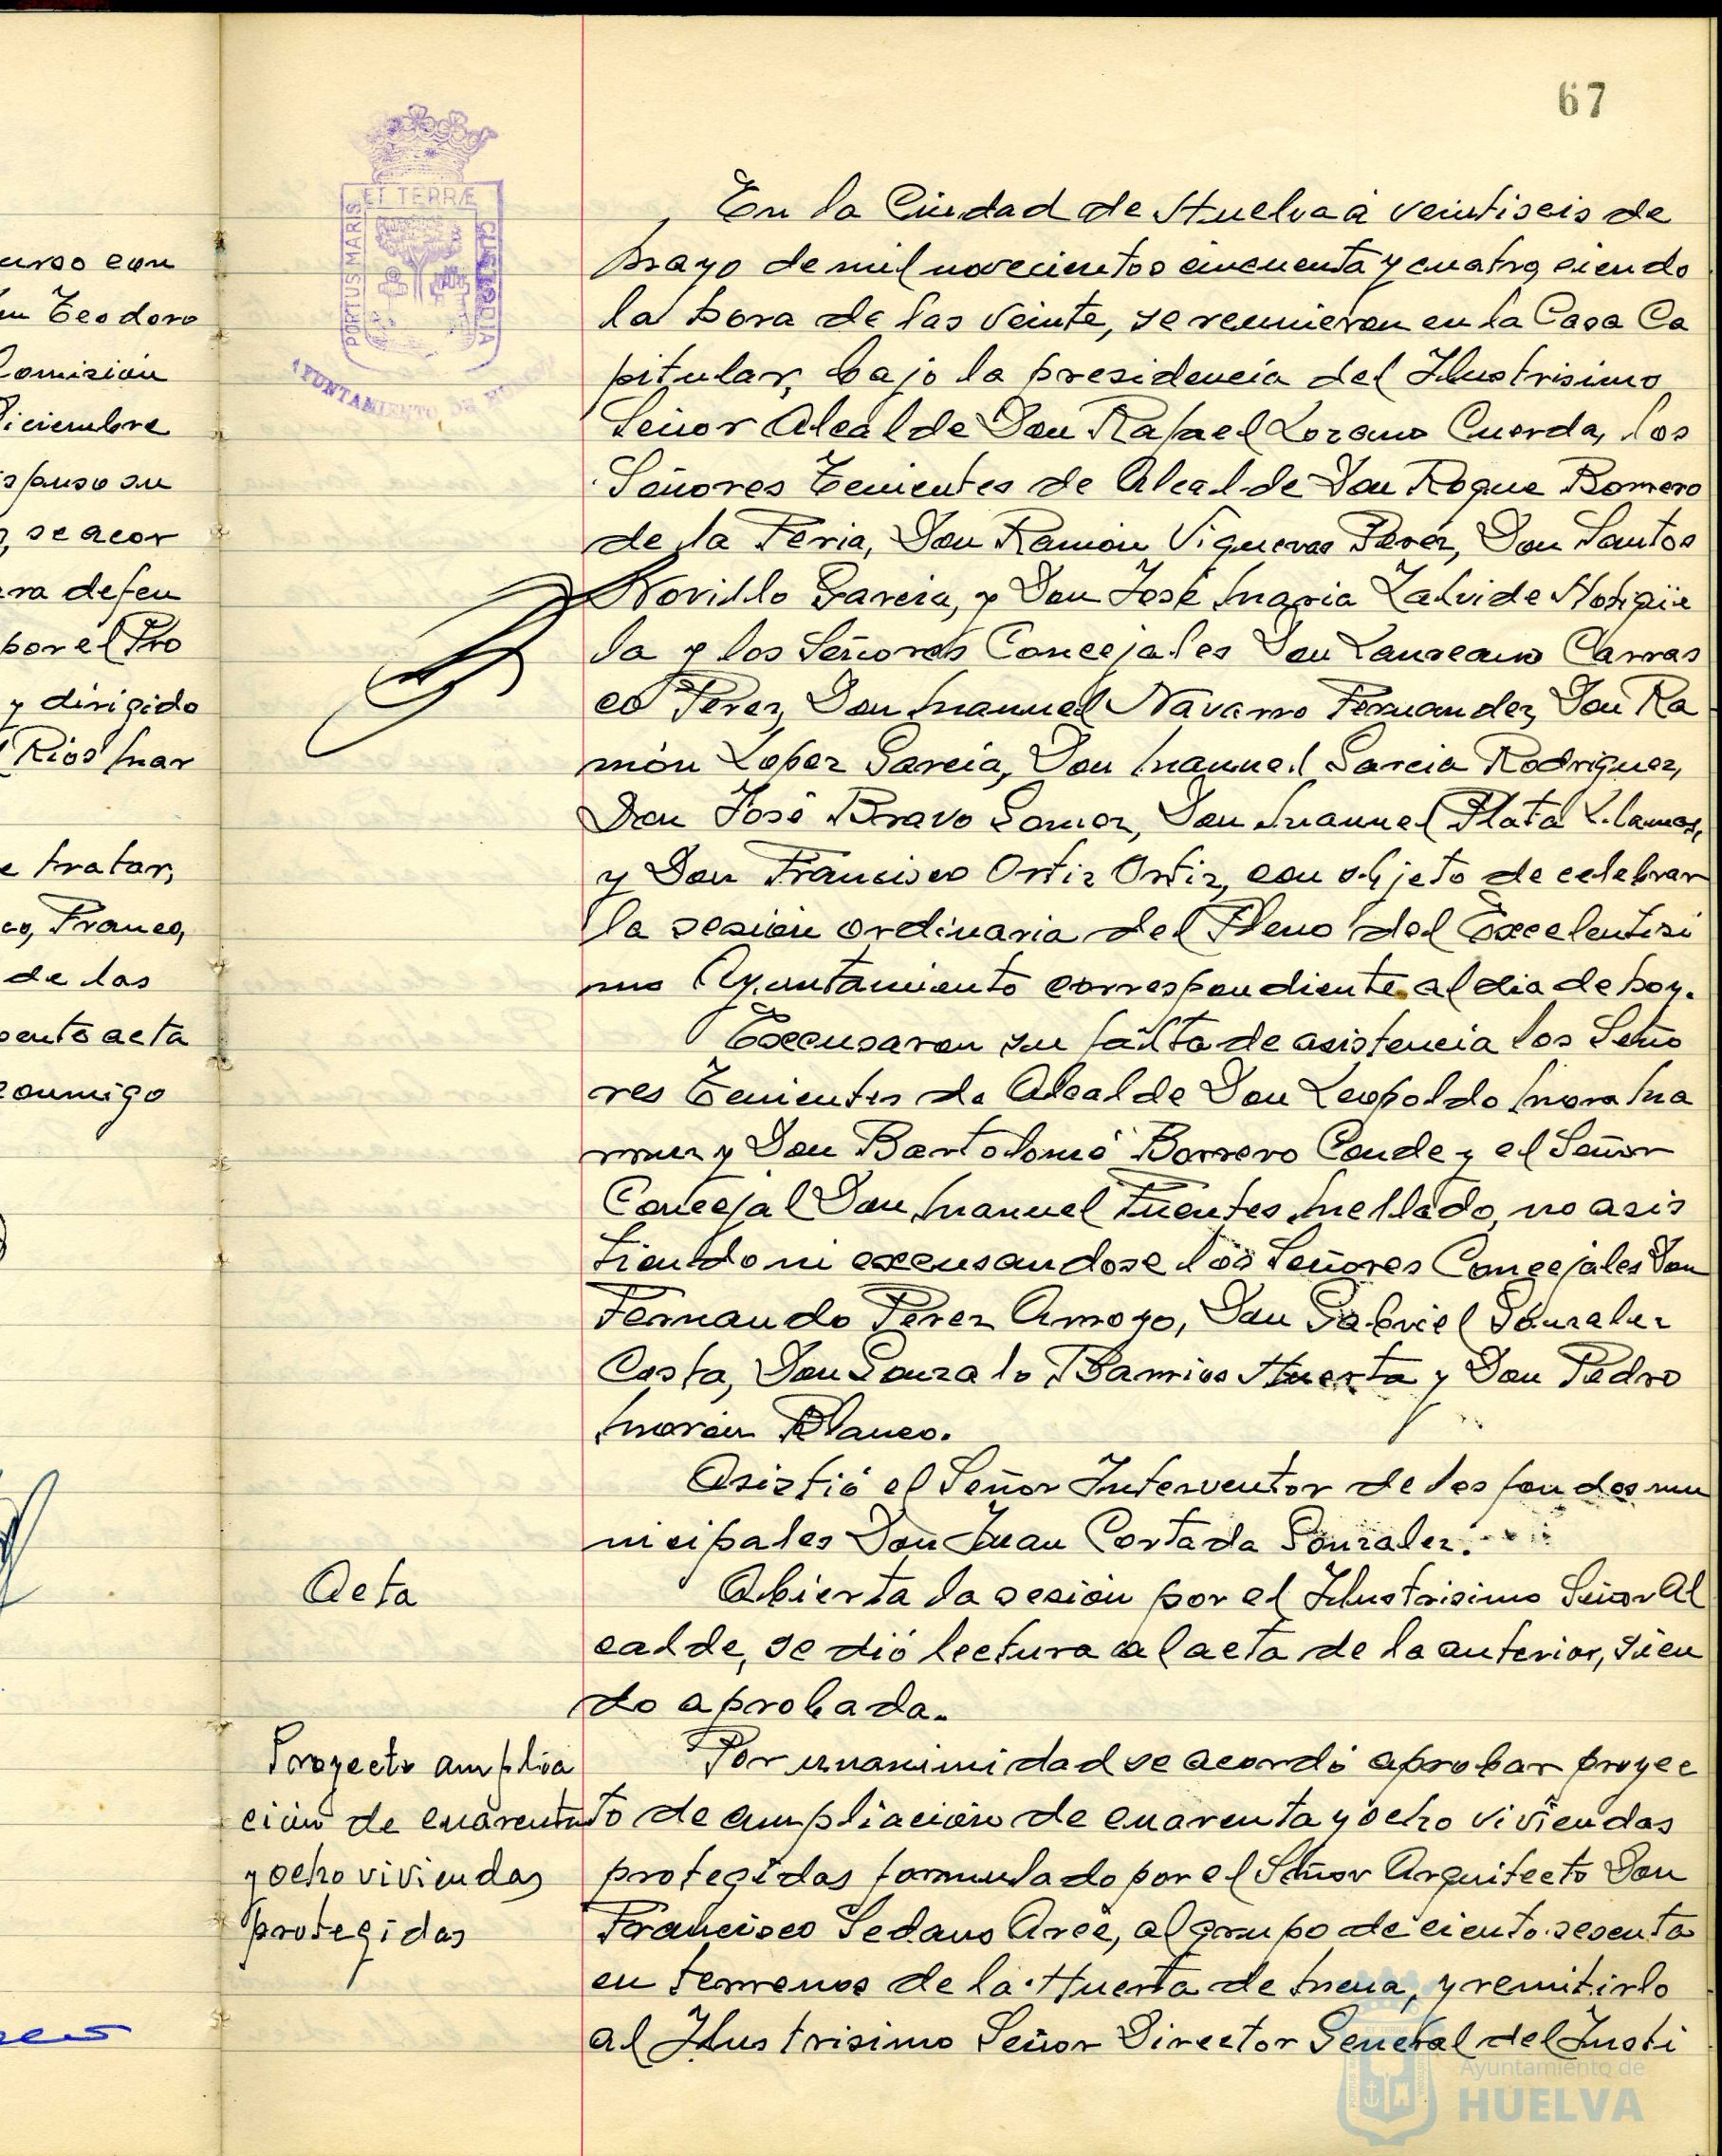 67
urso con
Teodoro
Comisión
Diciembre
spuso su
se acor
ra defen
por el Pro
y dirigido
Rios Mar
e tratar,
co, Franco,
de las
sente acta
conmigo
ET TERRÆ
PORTUS MARIS
CUSTODIA
AYUNTAMIENTO DE HUELVA
En la Ciudad de Huelva a veintiseis de
Mayo de mil novecientos cincuenta y cuatro, siendo
la hora de las veinte, se reunieron en la Casa Ca
pitular, bajo la presidencia del Ilustrisimo
Señor Alcalde Don Rafael Lozano Cuerda, los
Señores Tenientes de Alcalde Don Roque Romero
de la Feria, Don Ramón Vigueras Perez, Don Santos
Novillo Garcia, y Don José Maria Zalvide Hotigüe
la y los Señores Concejales Don Laureano Carras
co Perez, Don Manuel Navarro Fernandez, Don Ra
món Lopez García, Don Manuel Garcia Rodriguez,
Don José Bravo Gomez, Don Manuel Plata Llamas,
y Don Francisco Ortiz Ortiz, con objeto de celebrar
la sesión ordinaria del Pleno del Excelentisi
mo Ayuntamiento correspondiente al dia de hoy.
Excusaron su falta de asistencia los Seño
res Tenientes de Alcalde Don Leopoldo Mora Ma
rmuz y Don Bartolomé Borrero Conde y el Señor
Concejal Don Manuel Fuentes Mellado, no asis
tiendo ni excusandose los Señores Concejales Don
Fernando Perez Arroyo, Don Gabriel Gonzalez
Costa, Don Gonzalo Barrios Huerta y Don Pedro
Morón Blanco.
Asistió el Señor Interventor de los fondos mu
nicipales Don Juan Cortada Gonzalez.
Acta
Abierta la sesión por el Ilustrisimo Señor Al
calde, se dió lectura al acta de la anterior, sien
do aprobada.
Proyecto amplia
ción de cuarenta
y ocho viviendas
protegidas
Por unanimidad se acordó aprobar proyec
to de ampliación de cuarenta y ocho viviendas
protegidas formulado por el Señor Arquitecto Don
Francisco Sedano Arce, al grupo de ciento sesenta
en terrenos de la Huerta de Mena, y remitirlo
al Ilustrisimo Señor Director General del Insti
Ayuntamiento de
HUELVA